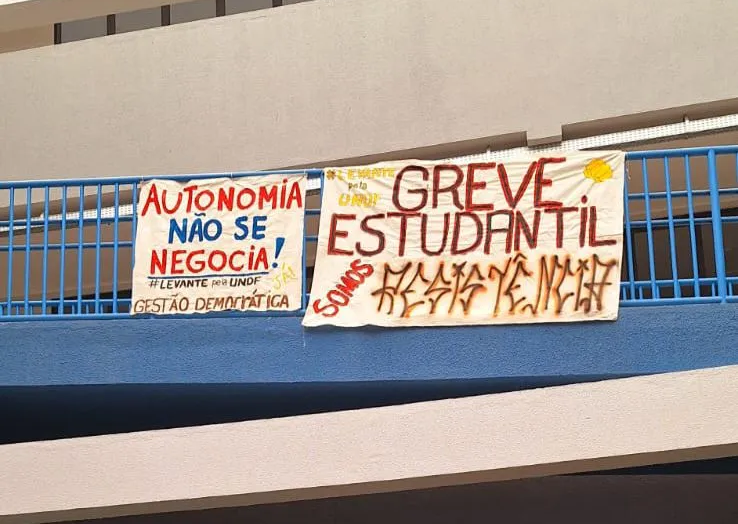 AUTONOMIA
NÃO SE
NEGOCIA!
#LEVANTE pela UNDF
JÁ!
GESTÃO DEMOCRÁTICA
#LEVANTE
pela
UNDF
GREVE
ESTUDANTIL
SOMOS
RESISTÊNCIA